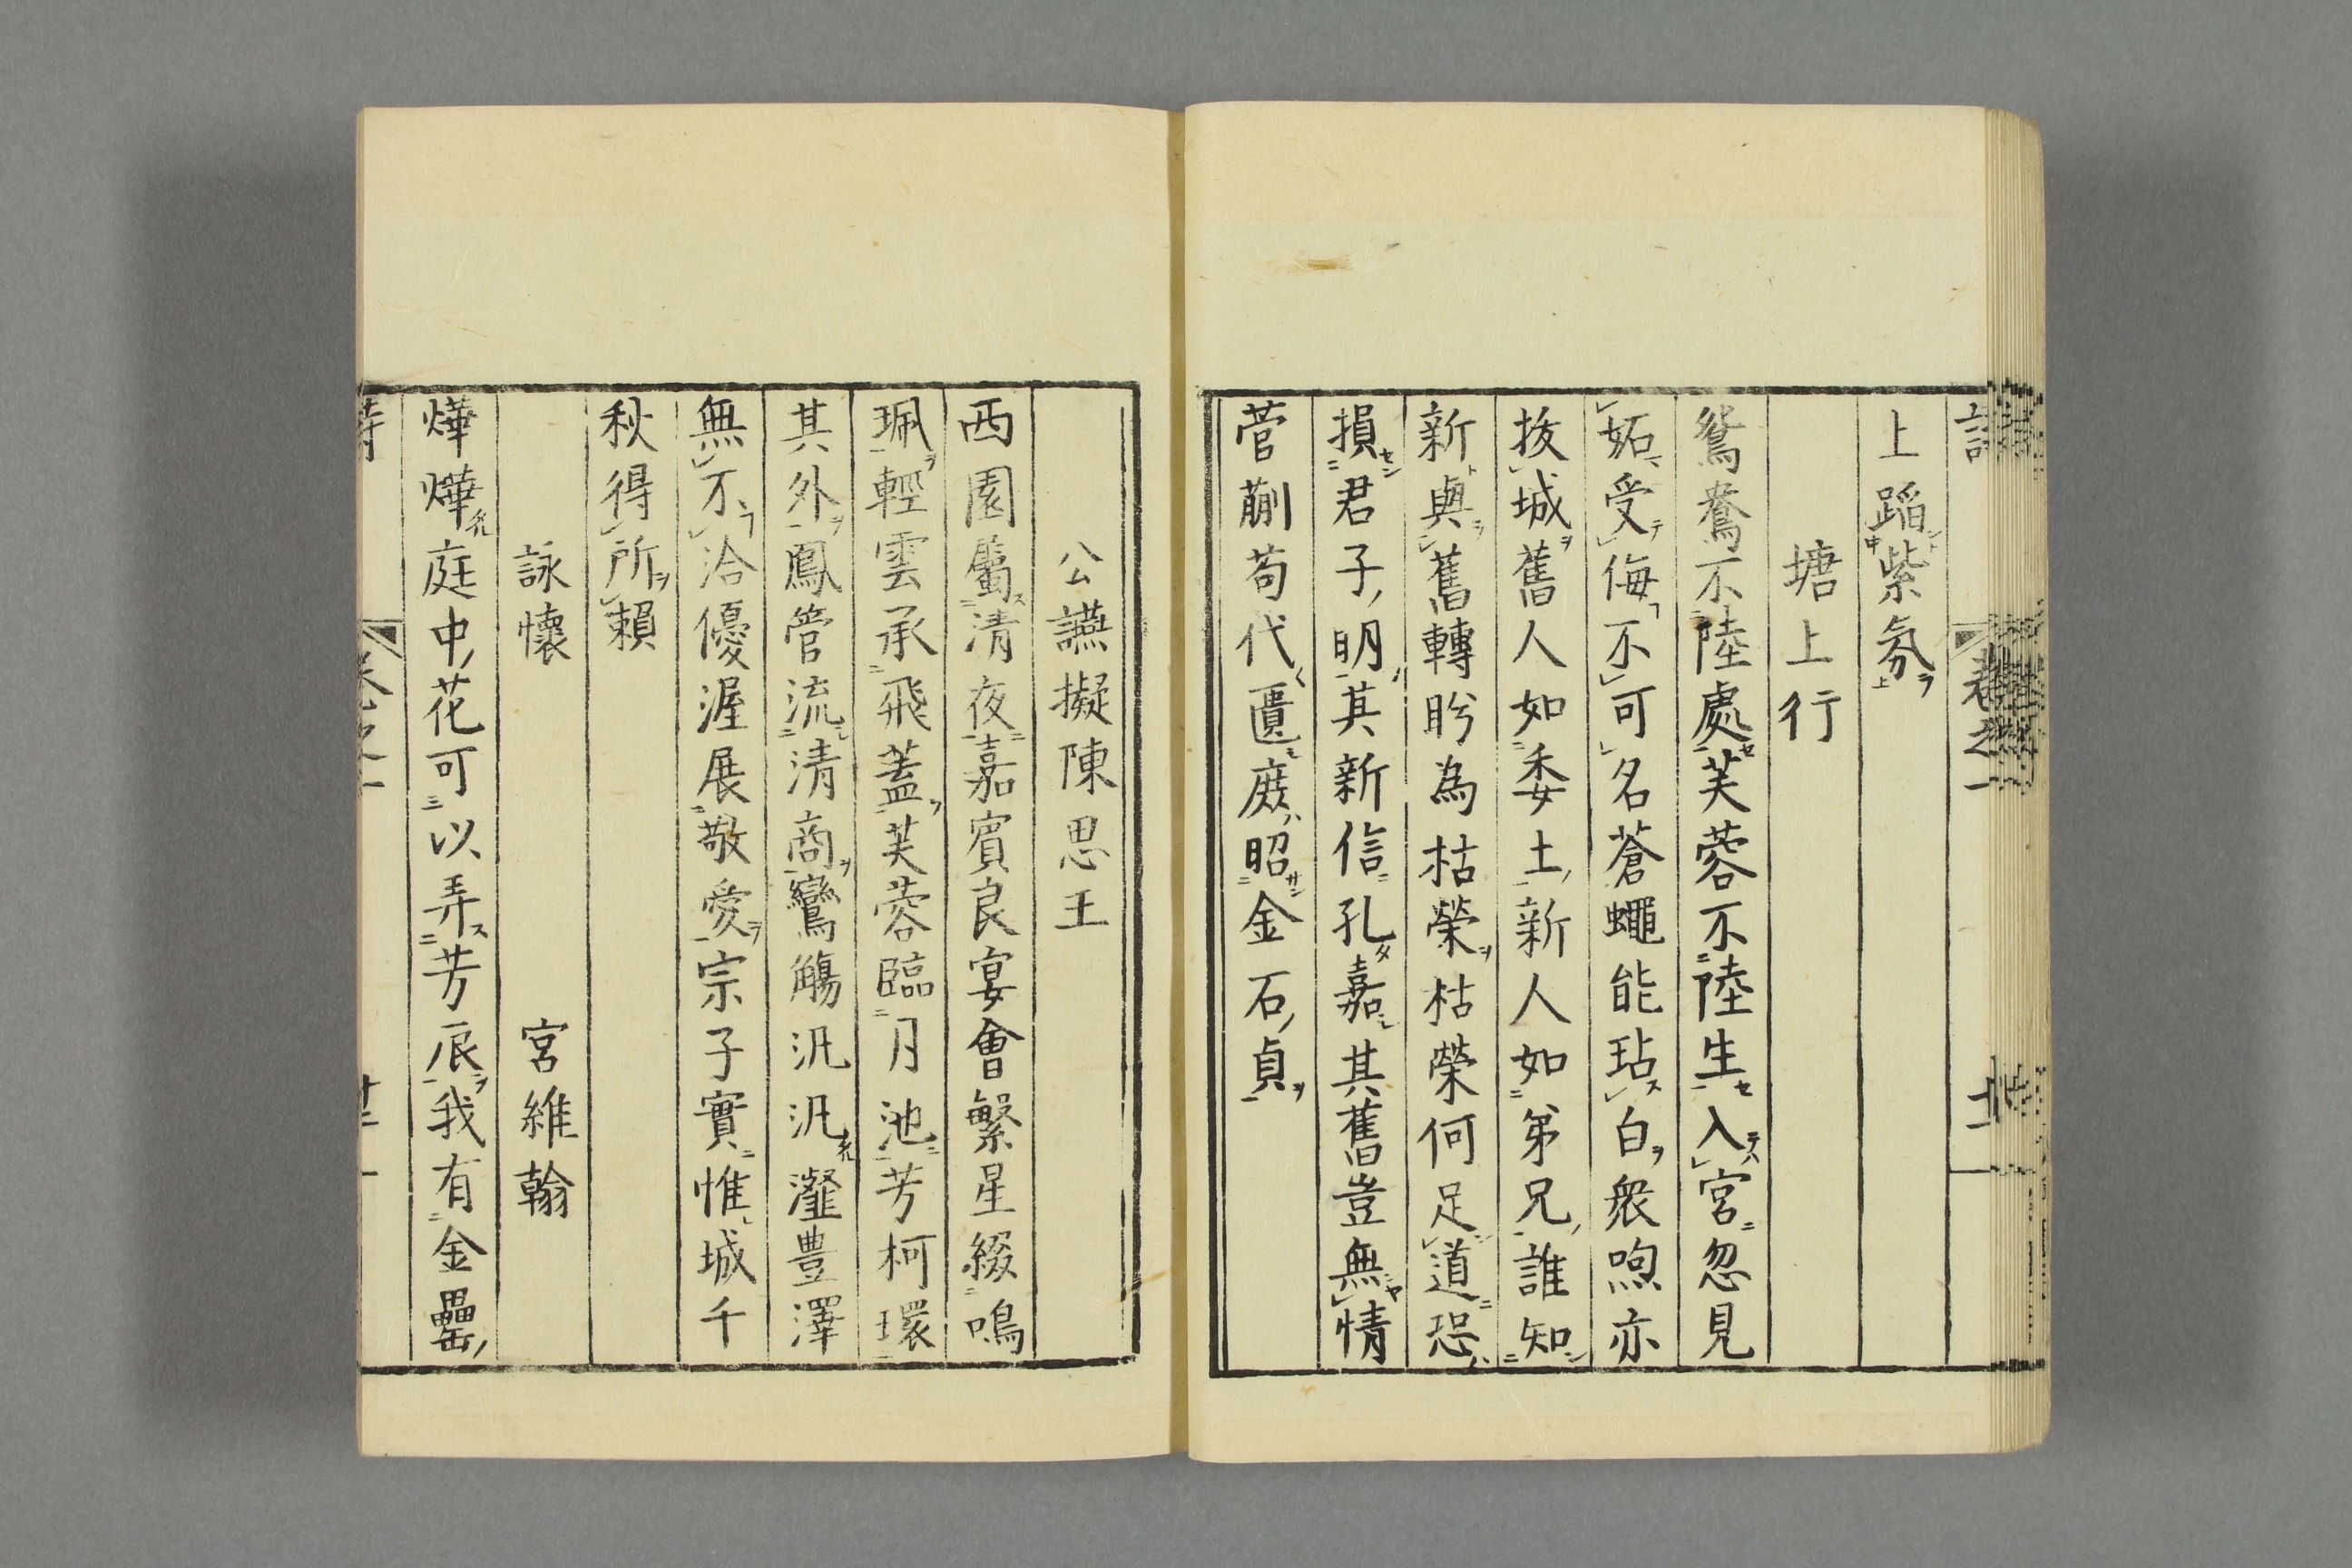 上蹈紫氛
塘上行
鴛鴦不陸處芙蓉不陸生入宮忽見
妬受侮不可名蒼蠅能玷白衆喣亦
拔城舊人如委土新人如弟兄誰知
新與舊轉盻為枯榮枯榮何足道恐
損君子明其新信孔嘉其舊豈無情
菅蒯苟代匱庶昭金石貞
公讌擬陳思王
西園屬清夜嘉賓良宴會繁星綴鳴
珮輕雲承飛蓋芙蓉臨月池芳柯環
其外鳳管流清商鸞觴汎汎灩豊澤
無不洽優渥展敬愛宗子實惟城千
秋得所賴
詠懷 宮維翰
燁燁庭中花可以弄芳辰我有金罍